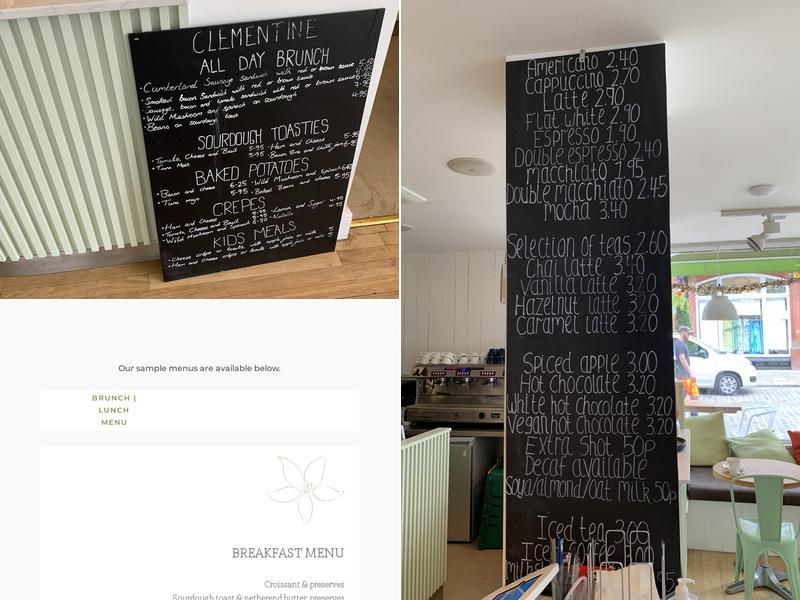 CLEMENTINE
ALL DAY BRUNCH
· Cumberland Sausage Sandwich with red or brown sauce 5.50
· Smoked bacon Sandwich with red or brown sauce
· Sausage, bacon and tomato sandwich with red or brown sauce
· Wild Mushroom and spinach on sourdough
· Beans on sourdough toast 4.95
SOURDOUGH TOASTIES
· Tomato, Cheese and Basil 5.95 · Ham and Cheese 5.95
· Tuna Melt 5.95 · Bacon, Brie and chilli jam 6.95
BAKED POTATOES
· Bacon and cheese 6.25 · Wild Mushroom and Spinach
· Tuna mayo 5.95 · Baked Beans and cheese 5.95
CREPES
· Ham and Cheese · Lemon and Sugar 4.95
· Tomato, Cheese and Basil 5.95 · Nutella 4.95
· Wild Mushroom and Spinach 6.50
KIDS MEALS
· Cheese crêpe or toastie with apple juice or milk 5
· Ham and Cheese crêpe or toastie with apple juice or milk 5
Our sample menus are available below.
BRUNCH |
LUNCH
MENU
BREAKFAST MENU
Croissant & preserves
Sourdough toast & netherend butter, preserves
Americano 2.40
Cappuccino 2.70
Latte 2.90
Flat white 2.90
Espresso 1.90
Double espresso 2.40
macchiato 1.95
Double macchiato 2.45
mocha 3.40
Selection of teas 2.60
Chai latte 3.40
Vanilla latte 3.20
Hazelnut latte 3.20
Caramel latte 3.20
Spiced apple 3.00
Hot chocolate 3.20
White hot chocolate 3.20
Vegan hot chocolate 3.20
Extra shot 50p
Decaf available
Soya/almond/oat milk 50p
Iced tea 3.00
Iced coffee 3.00